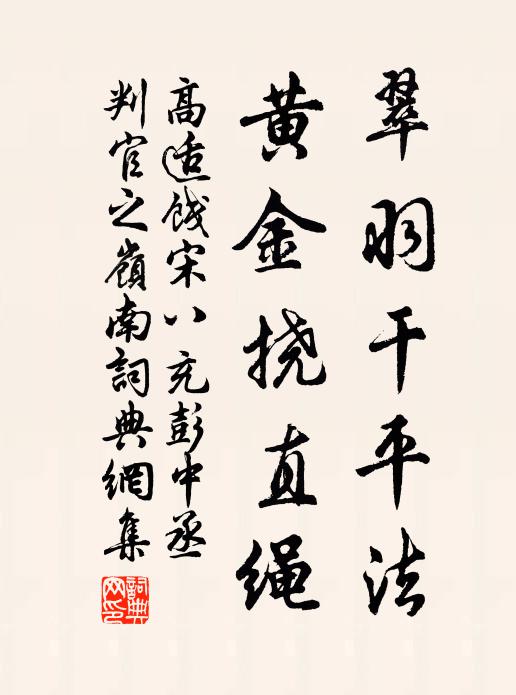 翠羽干平法
黄金挠直绳
高适饯宋八充彭中丞
判官之嶺南詞典網集
詞典网印